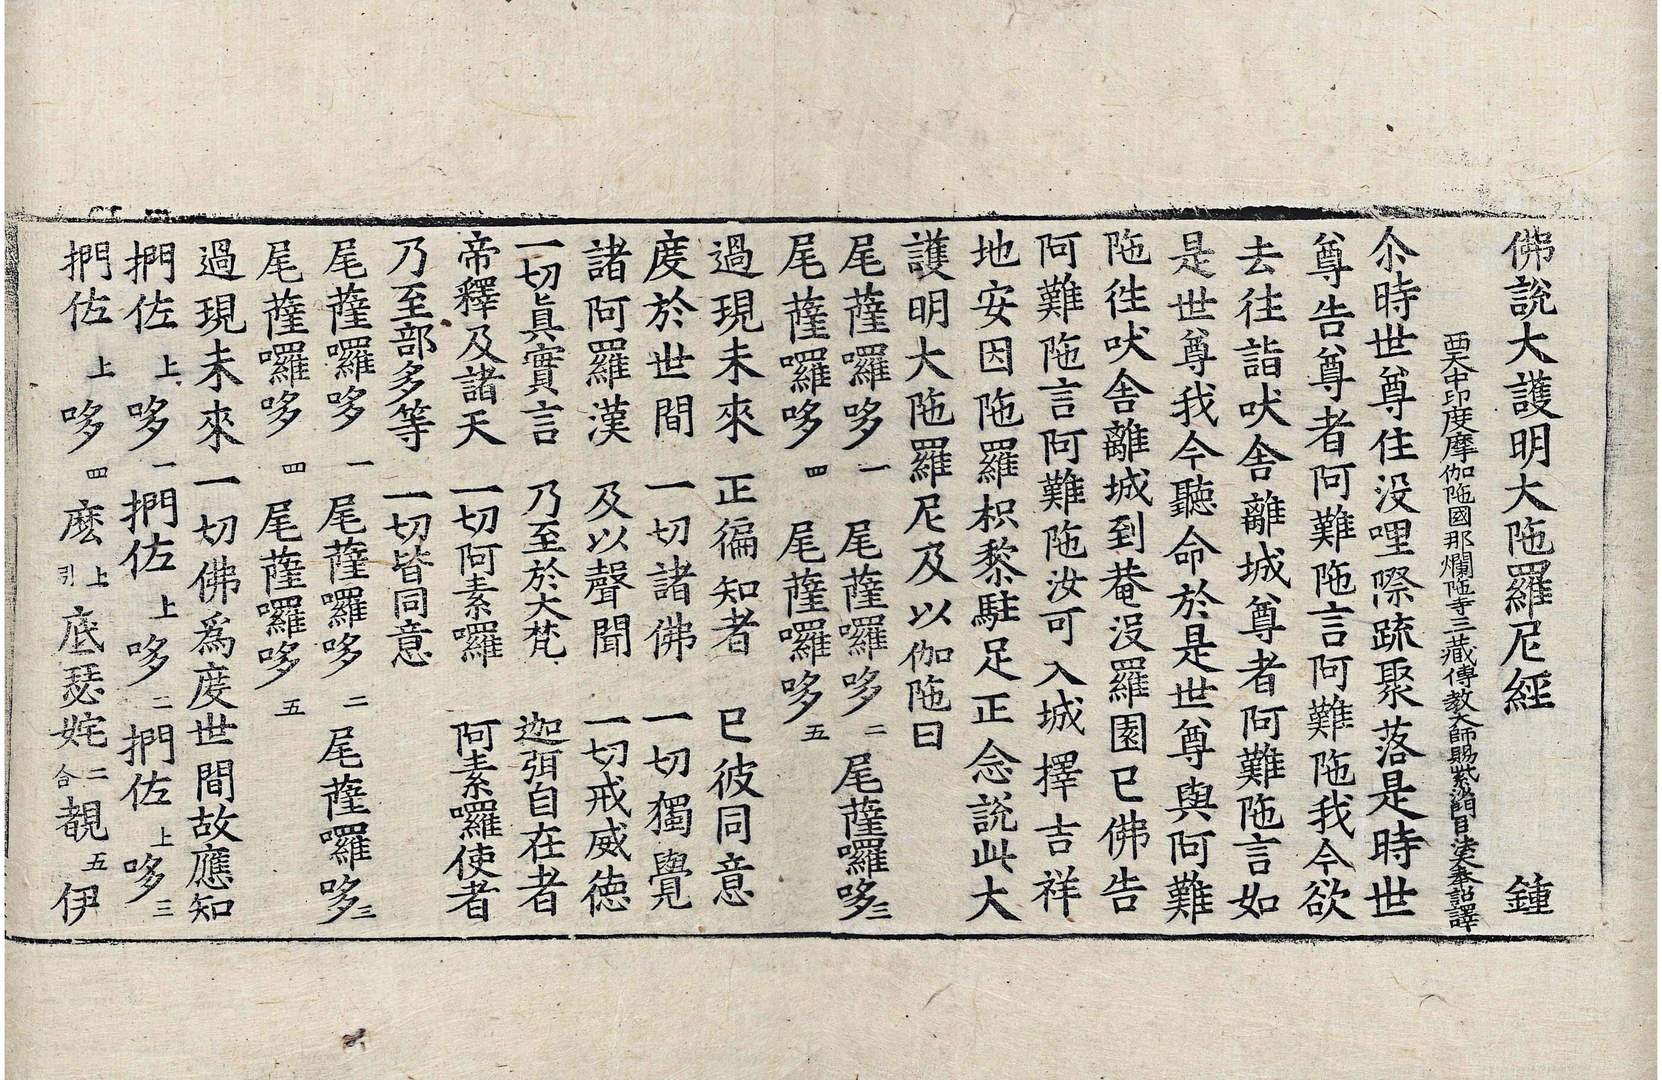 佛說大護明大陁羅尼經 鍾
西天中印度摩伽陁國那爛陁寺三藏傳教大師賜紫沙門臣法天奉詔譯
尒時世尊住没哩際疏聚落是時世
尊告尊者阿難陁言阿難陁我今欲
去往詣吠舎離城尊者阿難陁言如
是世尊我今聽命於是世尊與阿難
陁徃吠舎離城到菴没羅園已佛告
阿難陁言阿難陁汝可入城擇吉祥
地安因陁羅枳黎駐足正念説此大
護明大陁羅尼及以伽陁曰
尾薩囉哆一 尾薩囉哆二 尾薩囉哆三
尾薩囉哆四 尾薩囉哆五
過現未來 正徧知者 已彼同意
度於世間 一切諸佛 一切獨覺
諸阿羅漢 及以聲聞 一切戒威徳
一切眞實言 乃至於大梵 迦弭自在者
帝釋及諸天 一切阿素囉 阿素囉使者
乃至部多等 一切皆同意
尾薩囉哆一 尾薩囉哆二 尾薩囉哆三
尾薩囉哆四 尾薩囉哆五
過現未來一切佛爲度世間故應知
捫佐上哆一捫佐上哆二捫佐上哆三
捫佐上哆四麽上引底瑟姹二合覩五伊